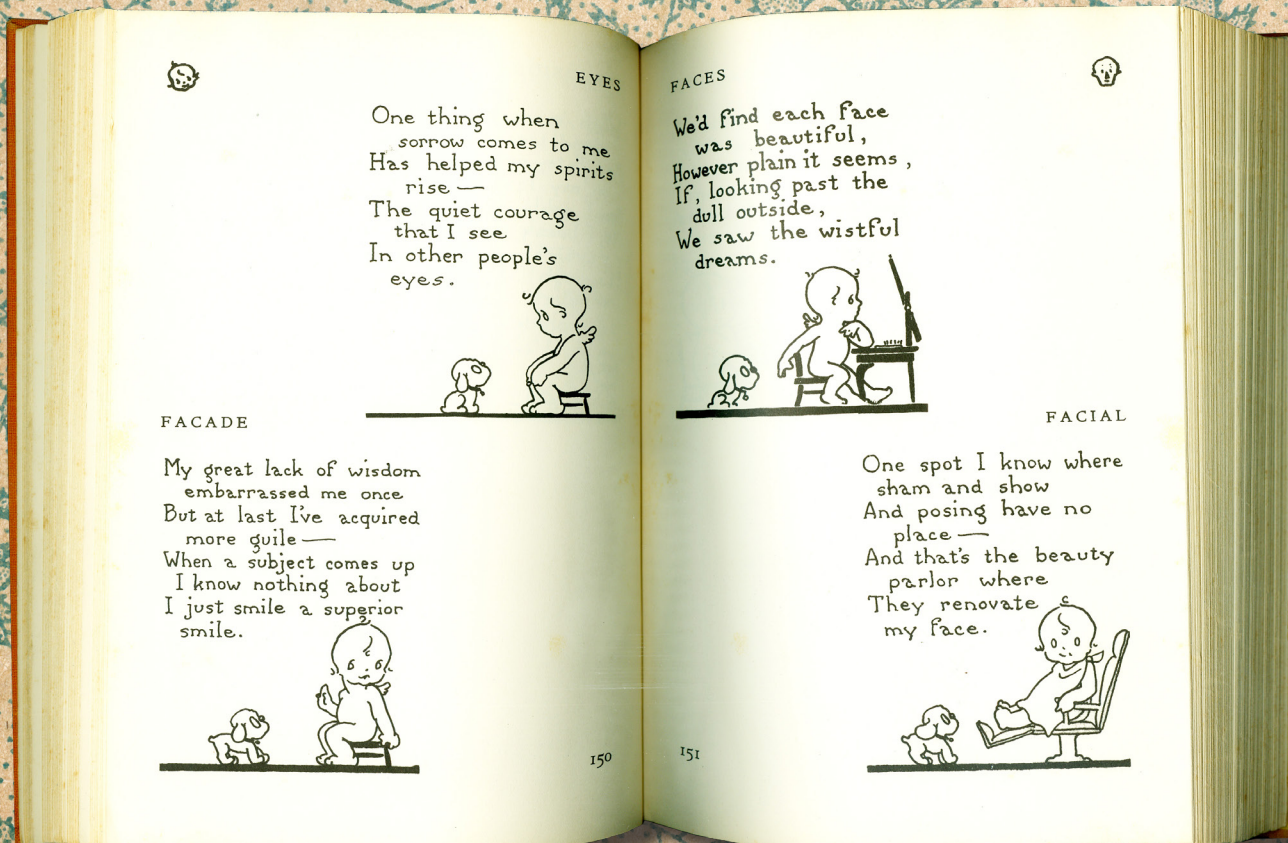 EYES
One thing when
sorrow comes to me
Has helped my spirits
rise —
The quiet courage
that I see
In other people's
eyes.
FACADE
My great lack of wisdom
embarrassed me once
But at last I've acquired
more guile —
When a subject comes up
I know nothing about
I just smile a superior
smile.
150
FACES
We'd find each face
was beautiful,
However plain it seems,
If, looking past the
dull outside,
We saw the wistful
dreams.
FACIAL
One spot I know where
sham and show
And posing have no
place —
And that's the beauty
parlor where
They renovate
my face.
151